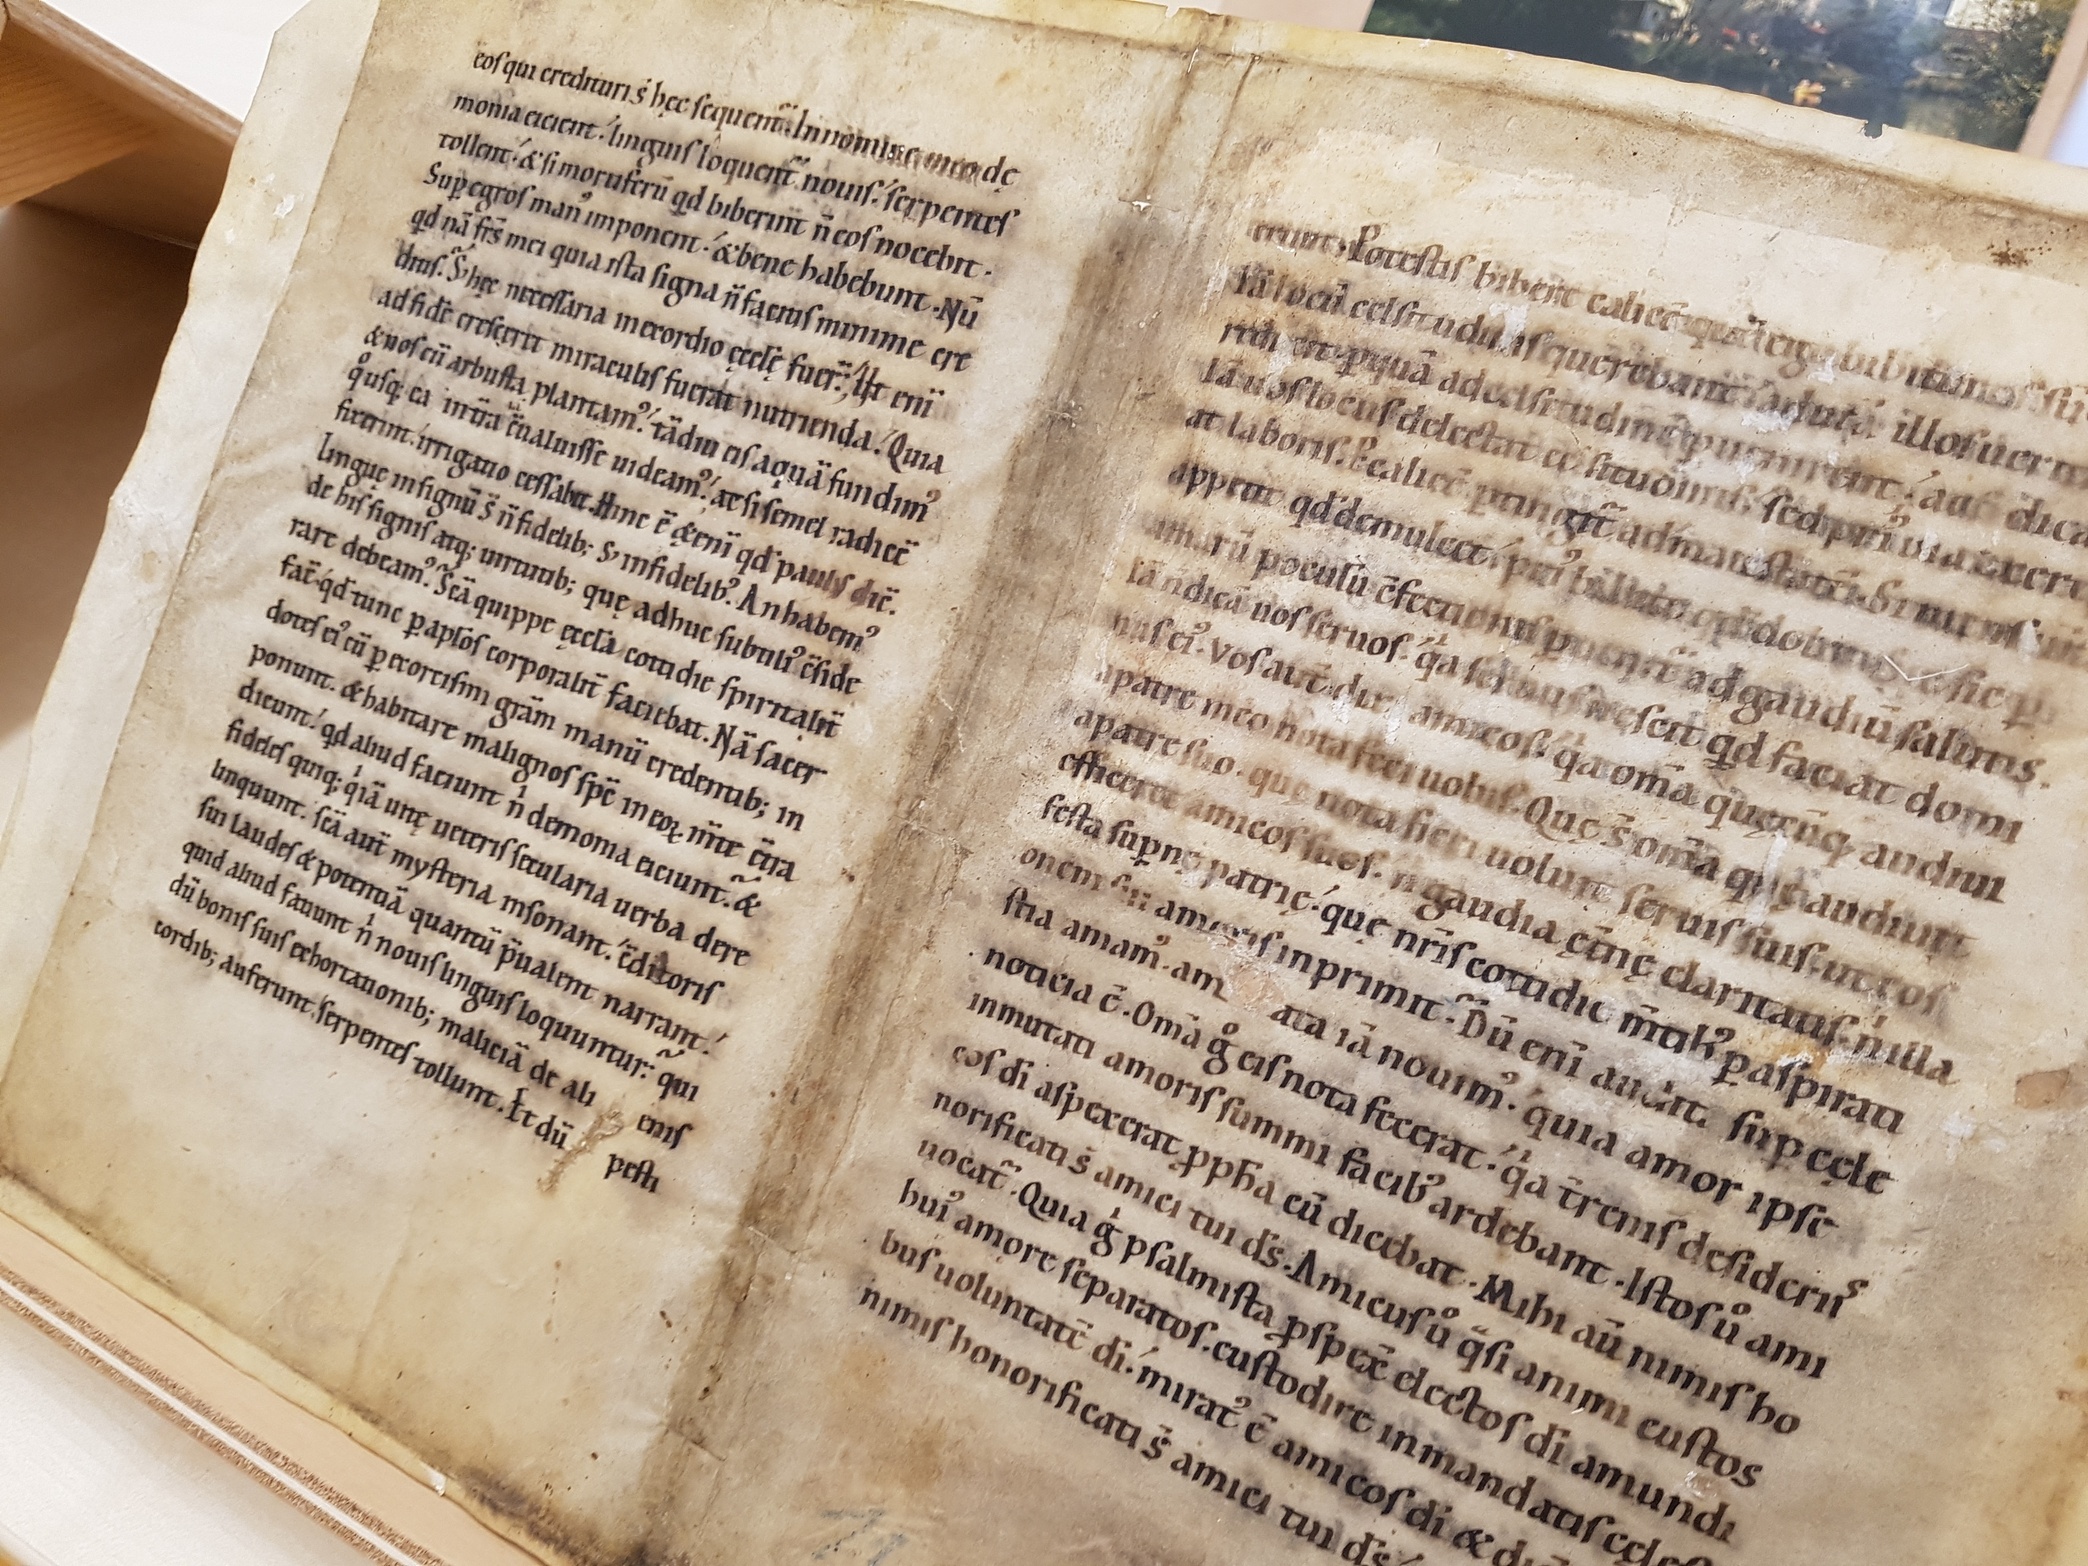 eos qui credituri s̄ hęc sequent̄. In nomine meo dę
monia eicient. linguis loquent̄ nouis. serpentes
tollent. & si mortiferū qd biberint n̄ eos nocebit.
Sup egros manꝰ imponent. & bene habebunt. Nū
qd nā fr̄s mei quia ista signa n̄ facitis minime cre
ditis. S; hęc necessaria in exordio ęcclę̄ fuer̄. Ut enī
ad fidē cresceret miraculis fuerat nutrienda. Quia
& nos cū arbusta plantamꝰ. tādiu eis aquā fundimꝰ
qͦusq; ea in tr̄a c̄ualuisse uideamꝰ. at si semel radicē
fixerint. irrigatio cessabit. Hinc ē & enī qd paulus dic̄.
Linguę in signū s̄ n̄ fidelib; s; infidelibꝰ. An habemꝰ
de his signis atq; uirtutib; quę adhuc subtiliꝰ c̄side
rare debeamꝰ. Sc̄a quippe ęccla̅ cottidie spiritalit̄
fac̄. qd tunc ꝑ aplo̅s corporalit̄ faciebat. Nā sacer
dotes eiꝰ cū ꝑ exorcismi grām manū credentib; in
ponunt. & habitare malignos spc̄ in eoꝝ m̄te c̄tra
dicunt. qd aliud faciunt nͥ demonia eiciunt. &
fideles quiq; qͥ iā uitę ueteris secularia uerba dere
linquunt. sc̄a aut̄ mysteria insonant. c̄ditoris
sui laudes & potentiā quantū p̄ualent narrant.
quid aliud faciunt nͥ nouis linguis loquuntur. qui
dū bonis suis exhortationib; maliciā de ali enis
cordib; auferunt. serpentes tollunt. Et dū pesti
erunt. Potestis bibere calicē quē ego bibiturus sū
Iā locū celsitudinis querebant. ad uiā illos uer
ritas ad celsitudinē puenirent. ac si dica
Iā uos locus delectat celsitudinis. sed priꝰ uia exerce
at laboris. ꝑ calicē ptingit̄ ad maiestatē. Si mens ur̄a
appetit qd demulcet. priꝰ bibite qd dolet. sic ꝑ
amarū poculū c̄fectionis puenit̄ ad gaudiū salutis.
Iā n̄ dicā uos seruos. qͥa seruus nescit qd faciat domi
nus eiꝰ. Vos aut̄ dixi amicos. qͥa om̄a quęcūq; audiui
a patre meo nota feci uobis. Quę s̄ om̄a quę audiuit
a patre suo. que nota fieri uoluit seruis suis. ut eos
efficeret amicos suos. nͥ gaudia et̄nę claritatis. nͥ illa
festa supnę patrię. quę nr̄is cottidie m̄tibꝰ ꝑ aspirati
onem sui amoris inprimit. Dū enī audita sup cęle
stia amamꝰ. am ata iā nouimꝰ. quia amor ipse
noticia ē. Om̄a gͦ eis nota fecerat. qͥa t̄renis desideriis
inmutati amoris summi facibꝰ ardebant. Istos uͦ ami
cos di̅ aspexerat ꝓpha cū dicebat. Mihi aū nimis ho
norificati s̄ amici tui ds̄. Amicus uͦ q̄si animi custos
uocat̄. Quia gͥ psalmista ꝓspex̄ electos di̅ a mundi
huiꝰ amore separatos. custodire in mandatis cęlesti
bus uoluntatē di̅. miratꝰ ē amicos di̅ &
nimis honorificati s̄ amici tui ds̄